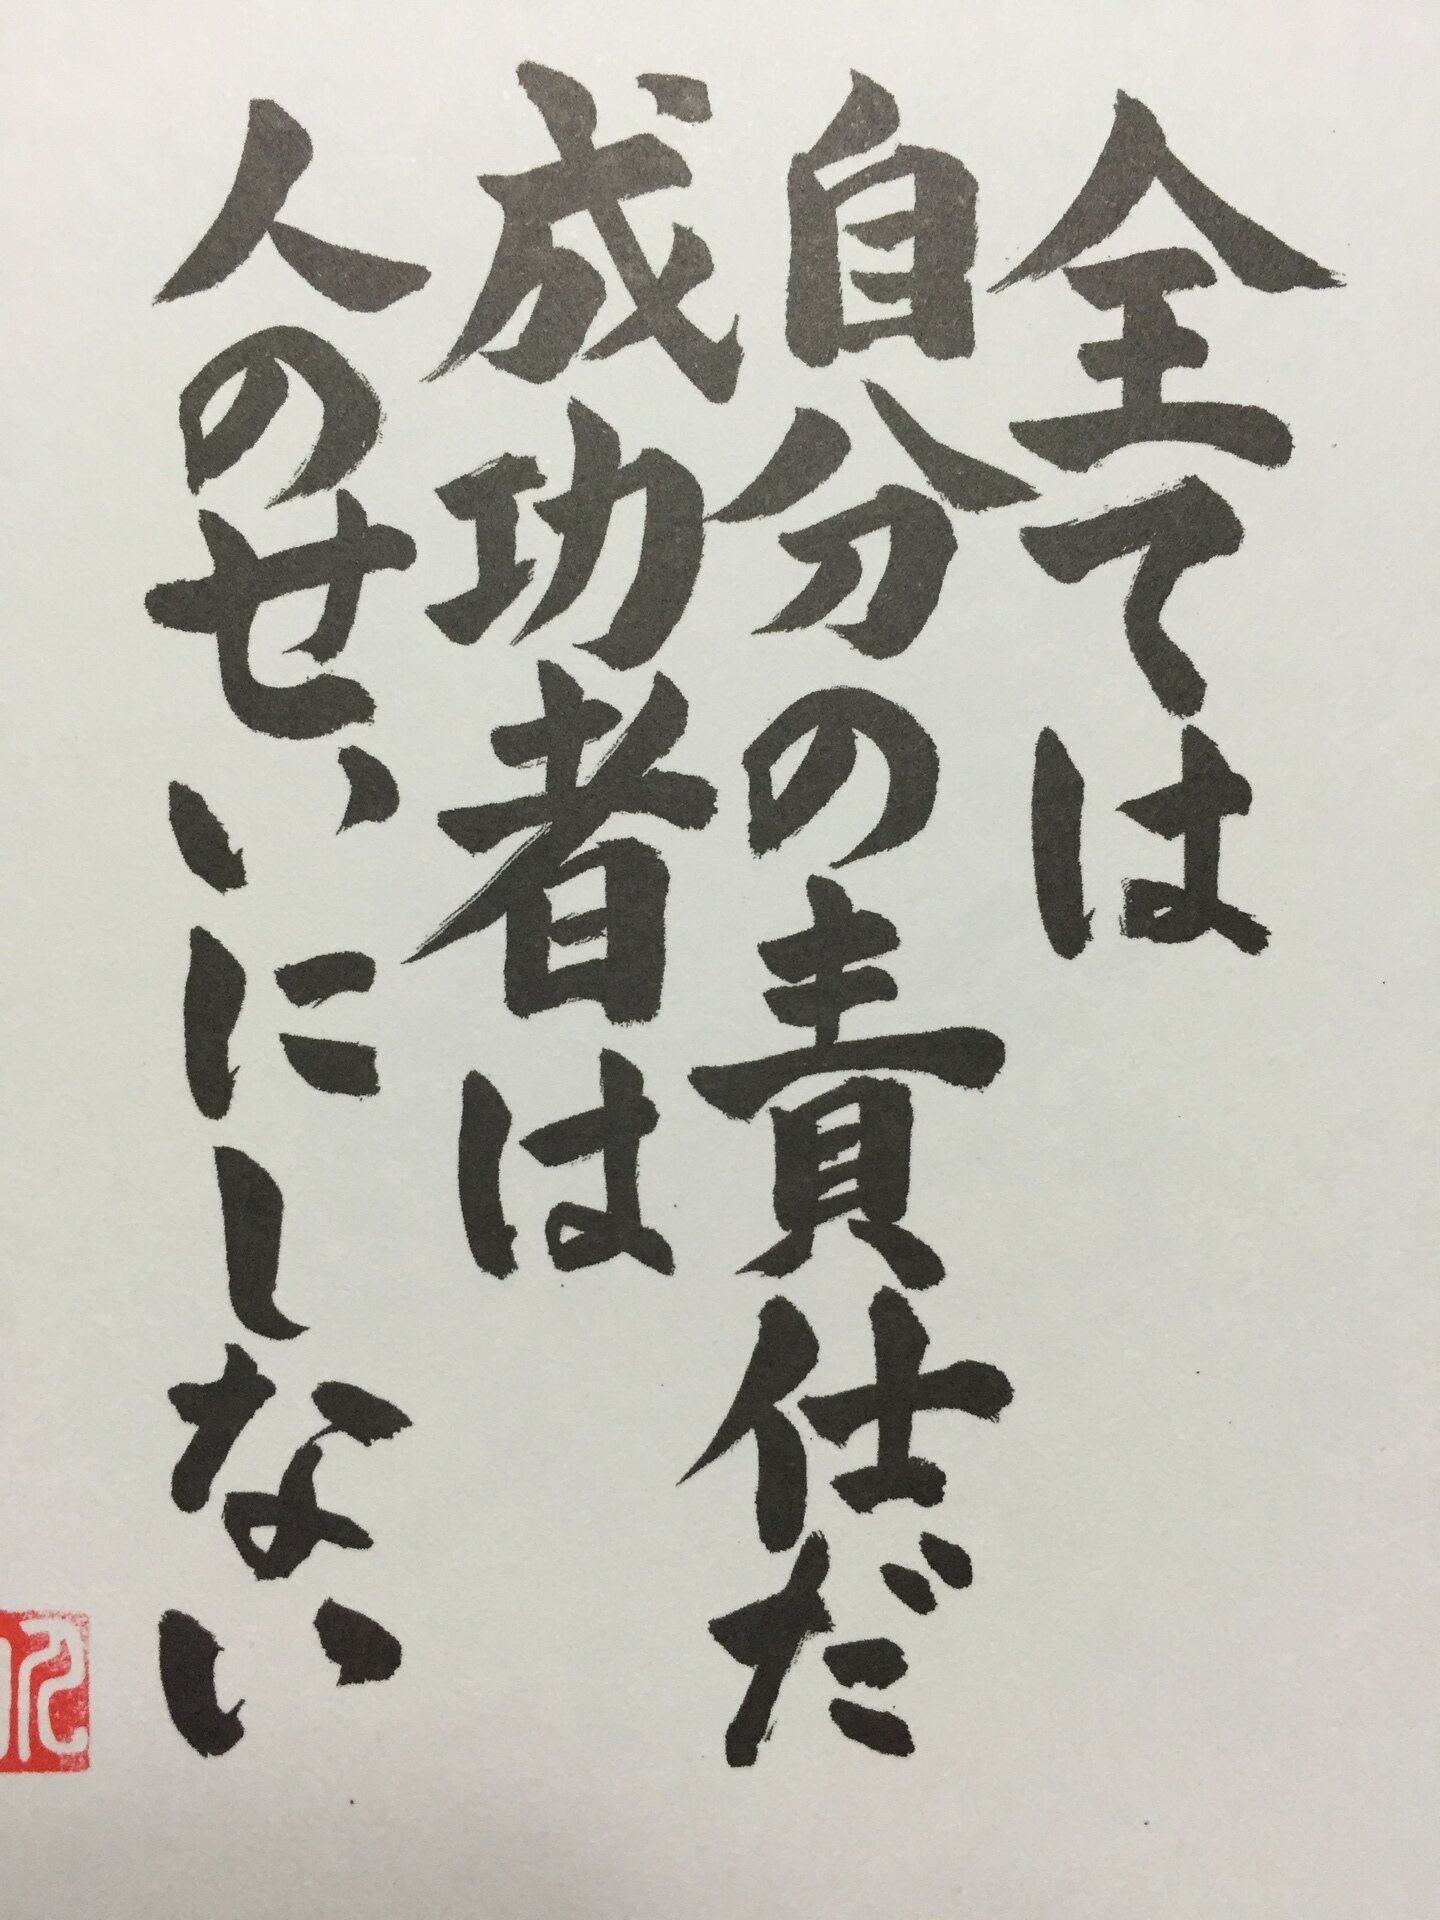 全ては
自分の責仕だ
成功者は
人のせいにしない